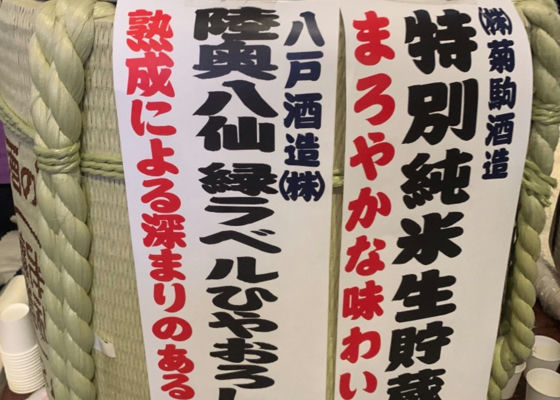 ㈱菊駒酒造
特別純米生貯蔵
まろやかな味わい
八戸酒造㈱
陸奥八仙 緑ラベルひやおろし
熟成による深まりのある